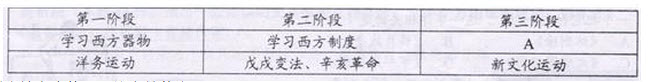 第一阶段 第二阶段 第三阶段
学习西方器物 学习西方制度 A
洋务运动 戊戌变法、辛亥革命 新文化运动